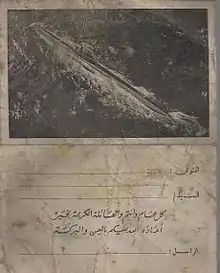 السيد :
كل عام وأنتم والعائلة الكريمة بخير
أعاده الله عليكم باليمن والبركة
الراسل :